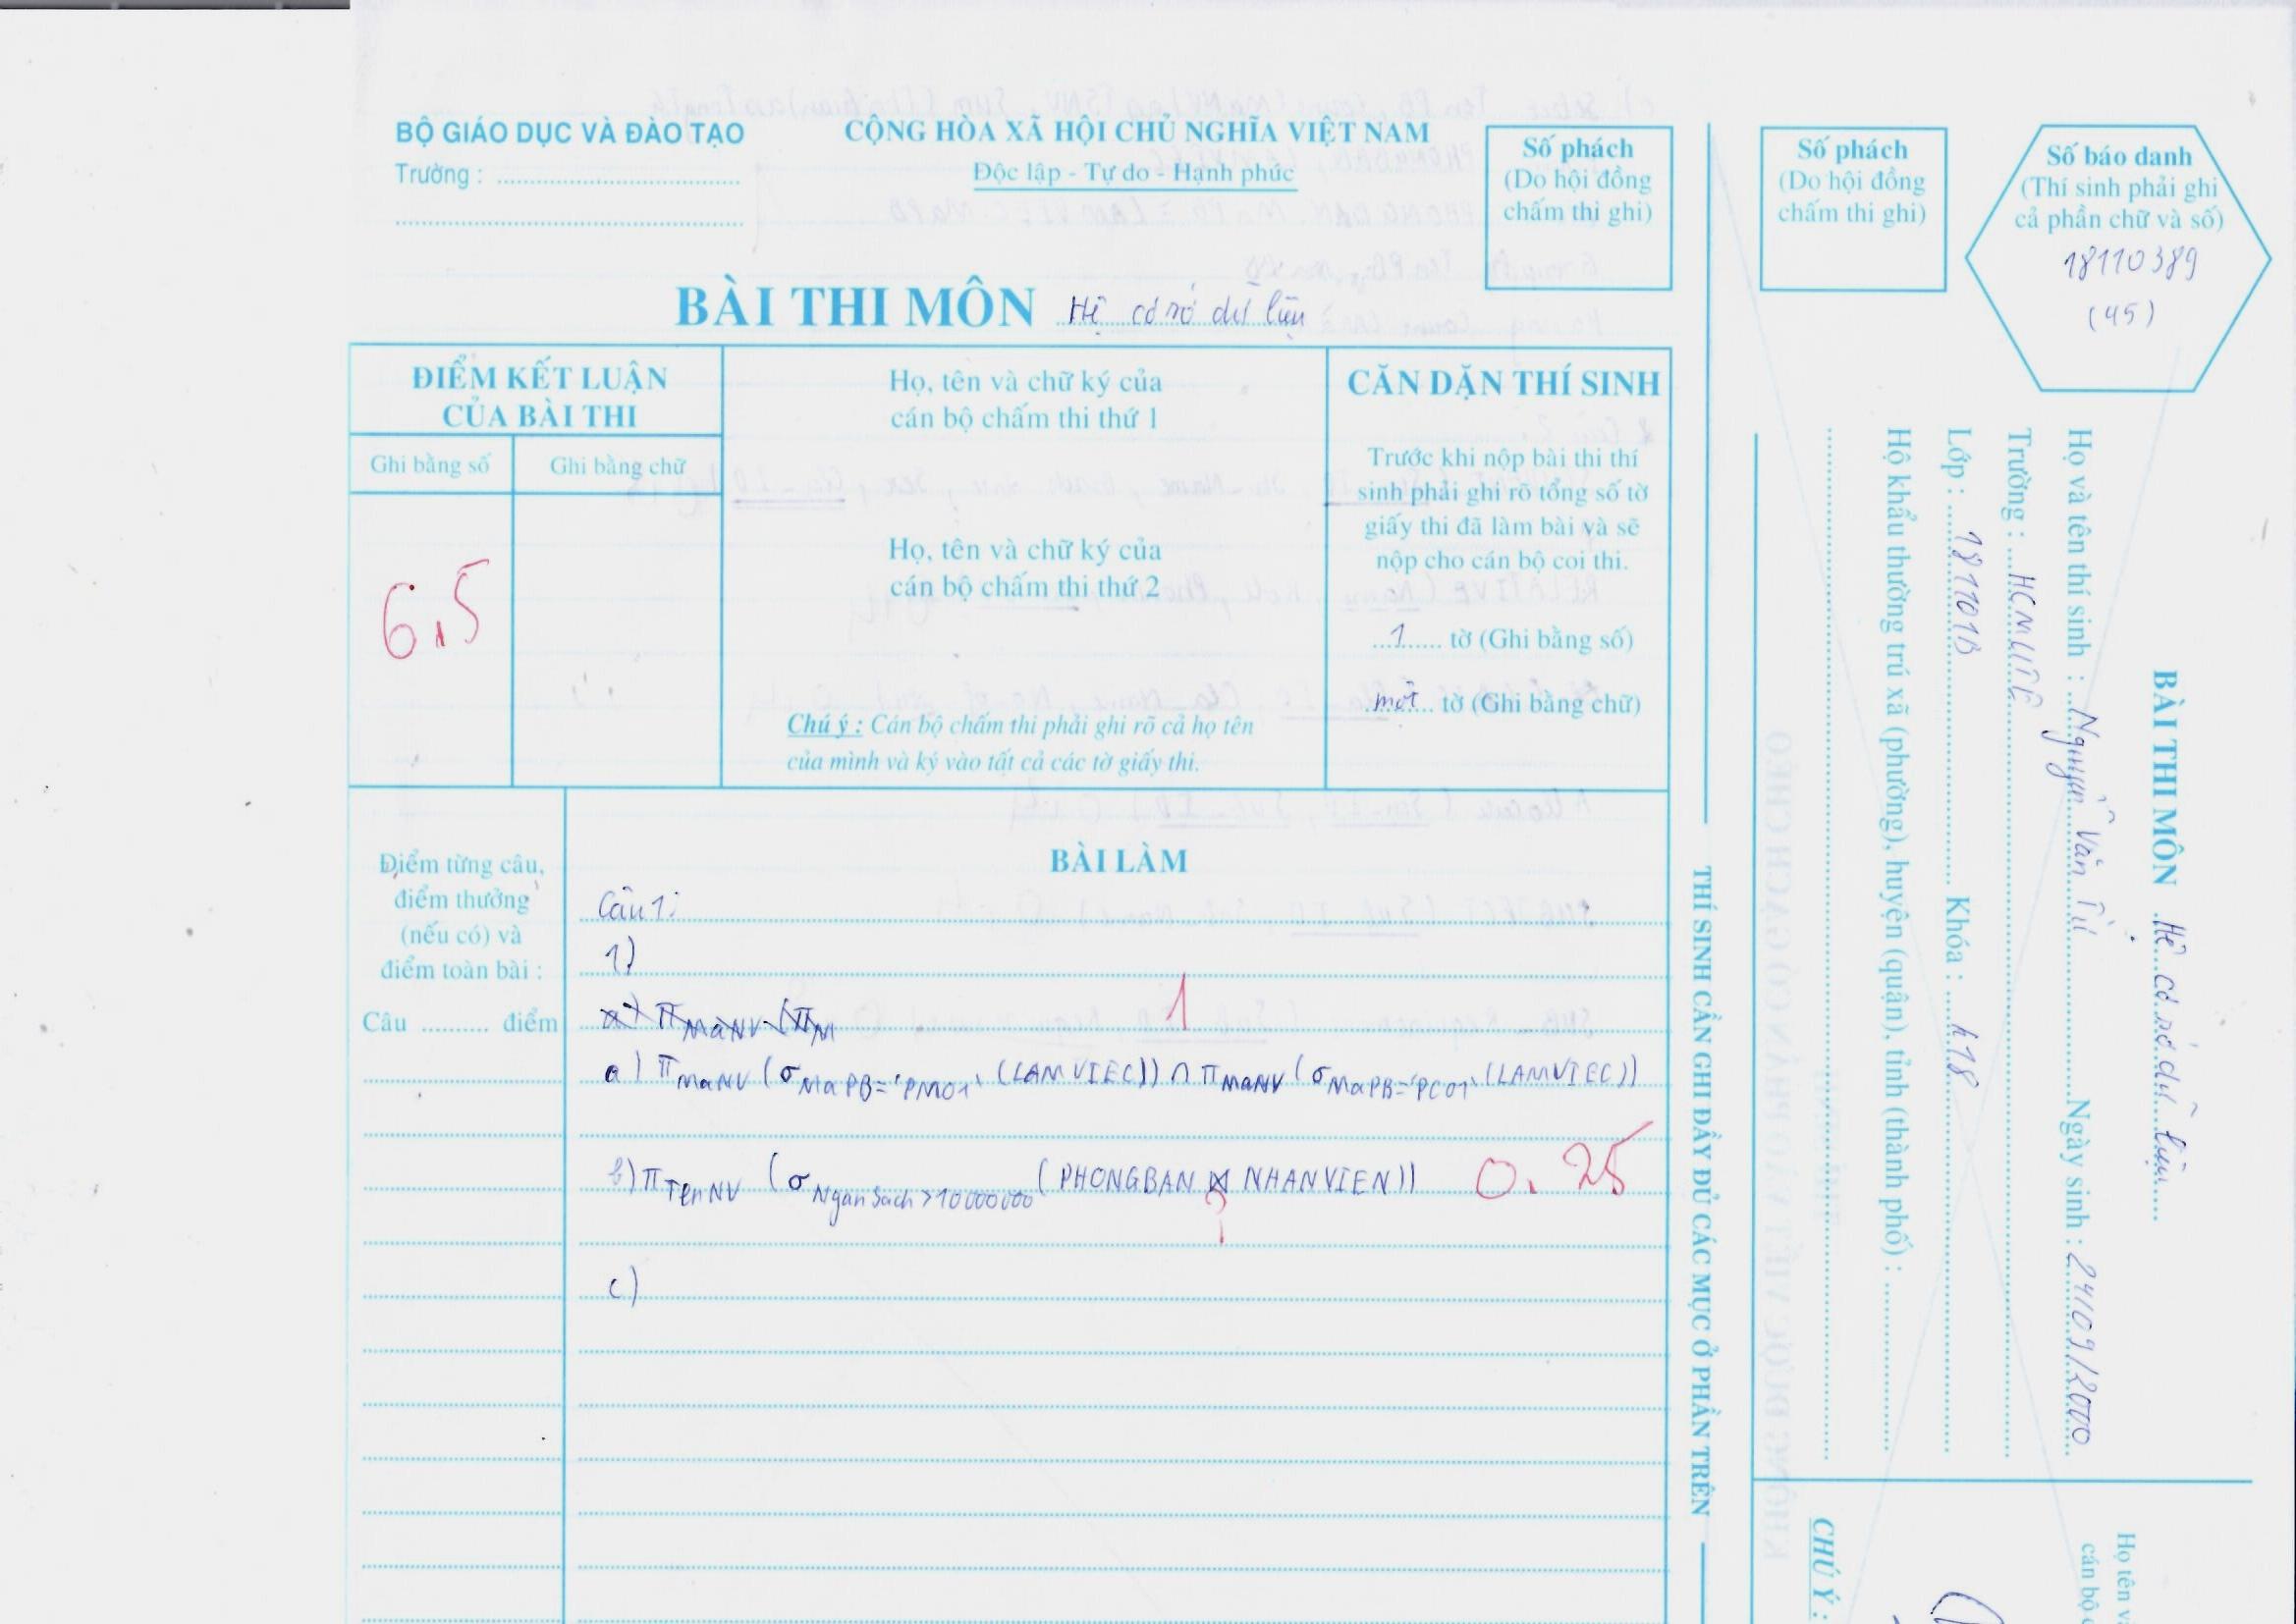 BỘ GIÁO DỤC VÀ ĐÀO TẠO
Trường :
CỘNG HÒA XÃ HỘI CHỦ NGHĨA VIỆT NAM
Độc lập - Tự do - Hạnh phúc
Số phách
(Do hội đồng
chấm thi ghi)
BÀI THI MÔN Hệ cơ sở dữ liệu
ĐIỂM KẾT LUẬN
CỦA BÀI THI
Ghi bằng số
Ghi bằng chữ
6.5
Họ, tên và chữ ký của
cán bộ chấm thi thứ 1
Họ, tên và chữ ký của
cán bộ chấm thi thứ 2
Chú ý : Cán bộ chấm thi phải ghi rõ cả họ tên
của mình và ký vào tất cả các tờ giấy thi.
CĂN DẶN THÍ SINH
Trước khi nộp bài thi thí
sinh phải ghi rõ tổng số tờ
giấy thi đã làm bài và sẽ
nộp cho cán bộ coi thi.
1 tờ (Ghi bằng số)
một tờ (Ghi bằng chữ)
Điểm từng câu,
điểm thưởng
(nếu có) và
điểm toàn bài :
Câu .......... điểm
BÀI LÀM
Câu 1:
1)
1
a) π MaNV (σ MaPB='PM01' (LAMVIEC)) ∩ π MaNV (σ MaPB='PC01' (LAMVIEC))
b) π TenNV (σ NganSach>10000000 (PHONGBAN ⋈ NHANVIEN)) 0.25
?
c)
THÍ SINH CẦN GHI ĐẦY ĐỦ CÁC MỤC Ở PHẦN TRÊN
Số phách
(Do hội đồng
chấm thi ghi)
Số báo danh
(Thí sinh phải ghi
cả phần chữ và số)
18110389
(45)
BÀI THI MÔN Hệ cơ sở dữ liệu
Họ và tên thí sinh : Nguyễn Văn Tú Ngày sinh : 24/09/2000
Trường : HCMUTE
Lớp : 181101B Khóa : k18
Hộ khẩu thường trú xã (phường), huyện (quận), tỉnh (thành phố) :
Họ tên và
cán bộ
CHÚ Ý :